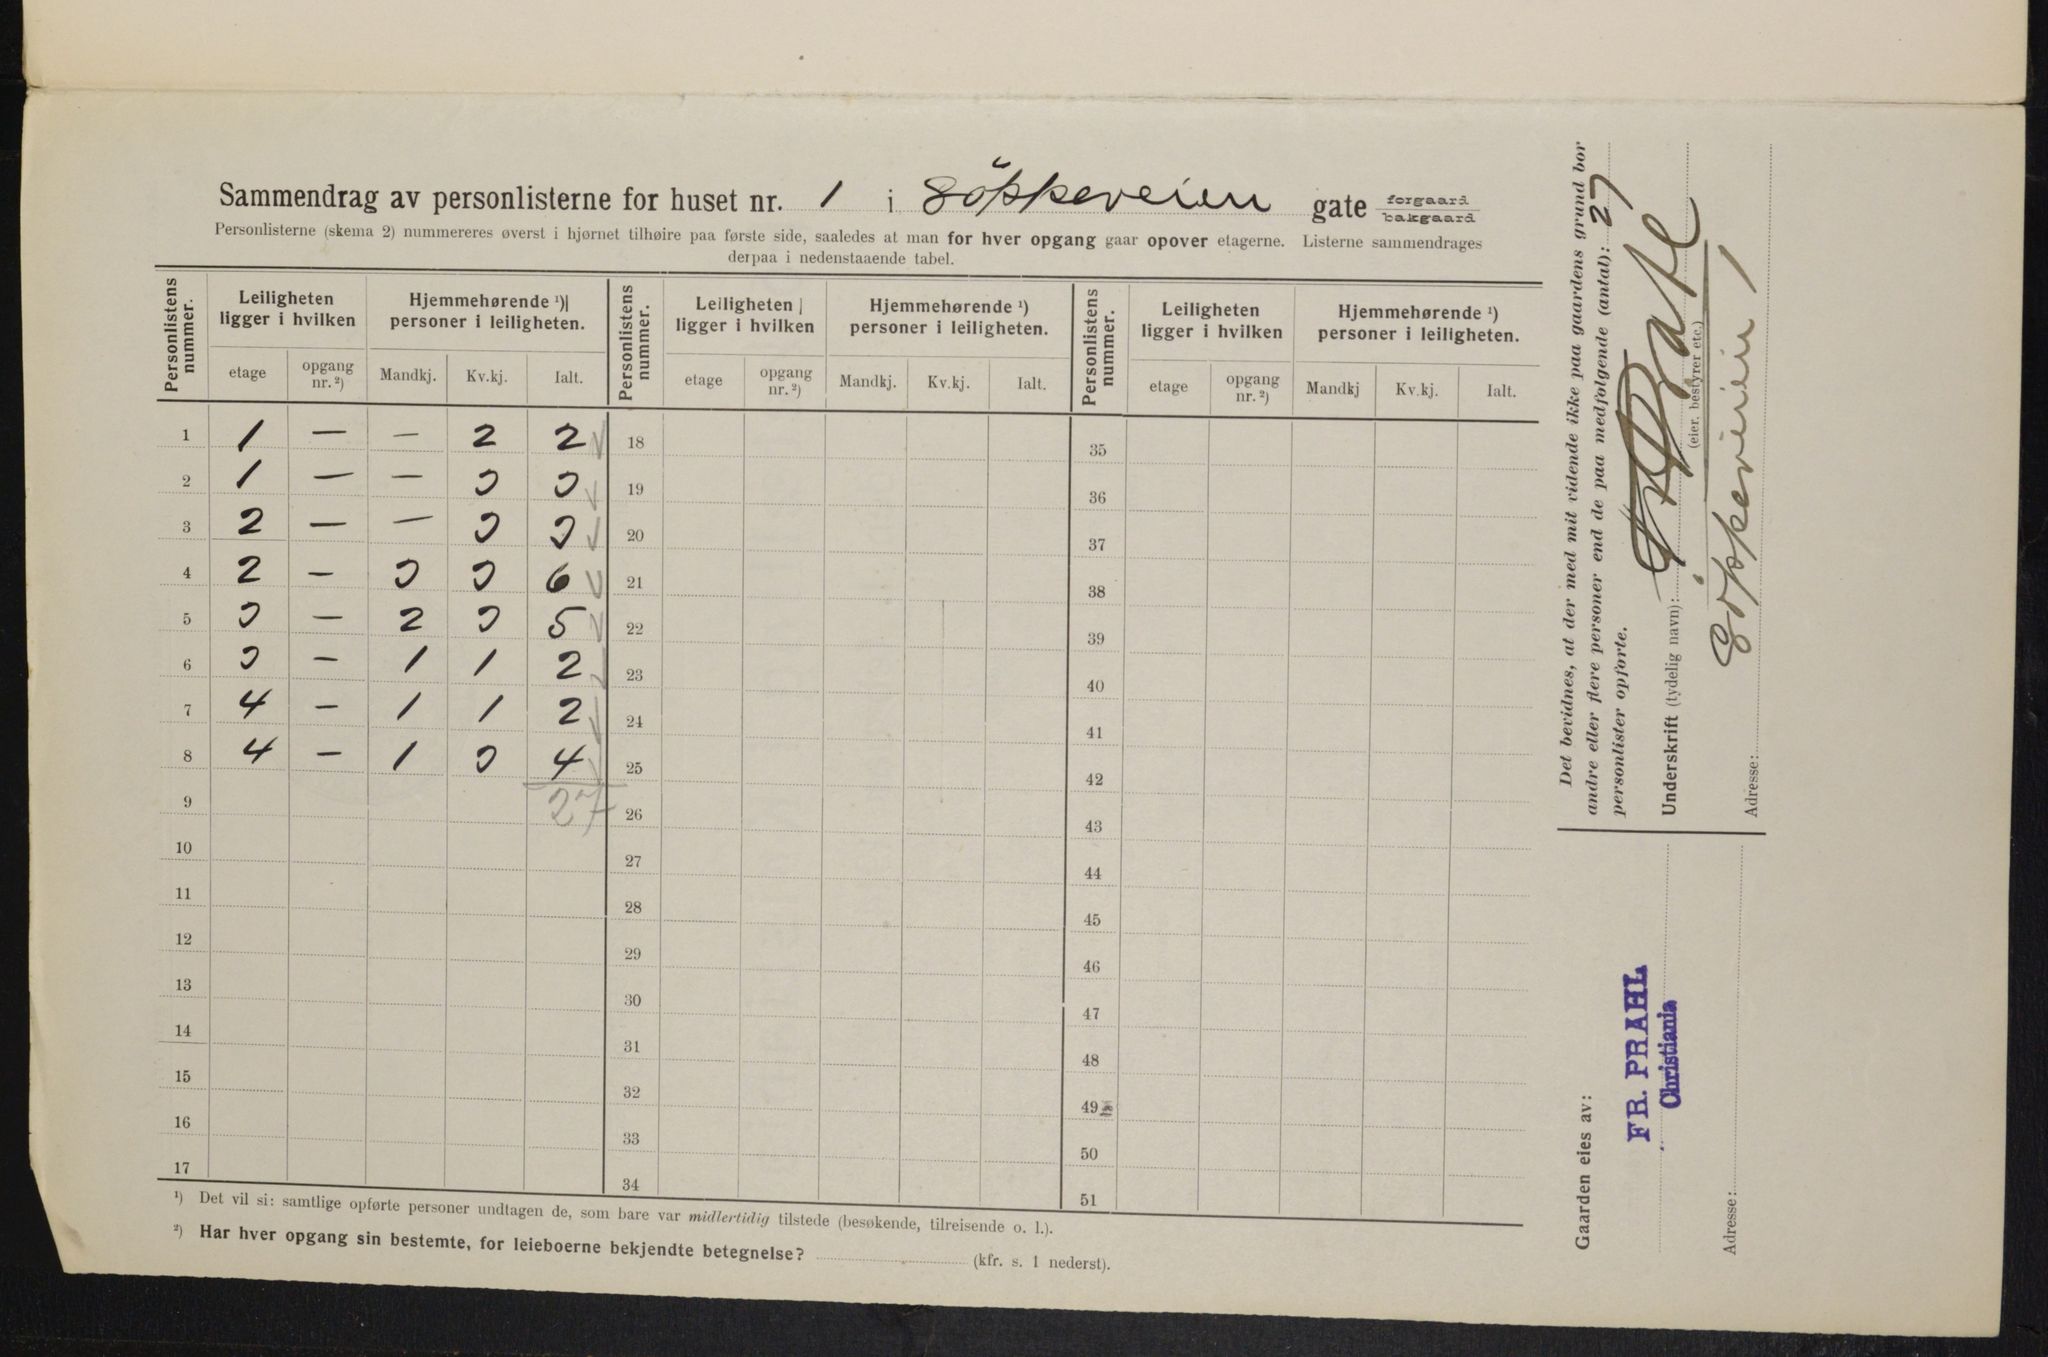 Sammendrag av personlisterne for huset nr. 1 i Göppeveien gate forgaard bakgaard
Personlisterne (skema 2) nummereres øverst i hjørnet tilhøire paa første side, saaledes at man for hver opgang gaar opover etagerne. Listerne sammendrages
derpaa i nedenstaaende tabel.
Personlistens nummer. Leiligheten ligger i hvilken Hjemmehørende ¹) personer i leiligheten. Personlistens nummer. Leiligheten ligger i hvilken Hjemmehørende ¹) personer i leiligheten. Personlistens nummer. Leiligheten ligger i hvilken Hjemmehørende ¹) personer i leiligheten.
etage opgang nr. ²) Mandkj. Kv.kj. Ialt. etage opgang nr. ²) Mandkj. Kv.kj. Ialt. etage opgang nr. ²) Mandkj Kv.kj. Ialt.
1 1 — — 2 2 18 35
2 1 — — 3 3 19 36
3 2 — — 3 3 20 37
4 2 — 3 3 6 21 38
5 3 — 2 3 5 22 39
6 3 — 1 1 2 23 40
7 4 — 1 1 2 24 41
8 4 — 1 3 4 25 42
9 27 26 43
10 27 44
11 28 45
12 29 46
13 30 47
14 31 48
15 32 49
16 33 50
17 34 51
¹) Det vil si: samtlige opførte personer undtagen de, som bare var midlertidig tilstede (besøkende, tilreisende o. l.).
²) Har hver opgang sin bestemte, for leieboerne bekjendte betegnelse? (kfr. s. 1 nederst).
Det bevidnes, at der med mit vidende ikke paa gaardens grund bor
andre eller flere personer end de paa medfølgende (antal): 27
personlister opførte.
Underskrift (tydelig navn):
(eier, bestyrer etc.)
Adresse: Göppeveien 1
Gaarden eies av:
FR. PRAHL
Christiania
Adresse: